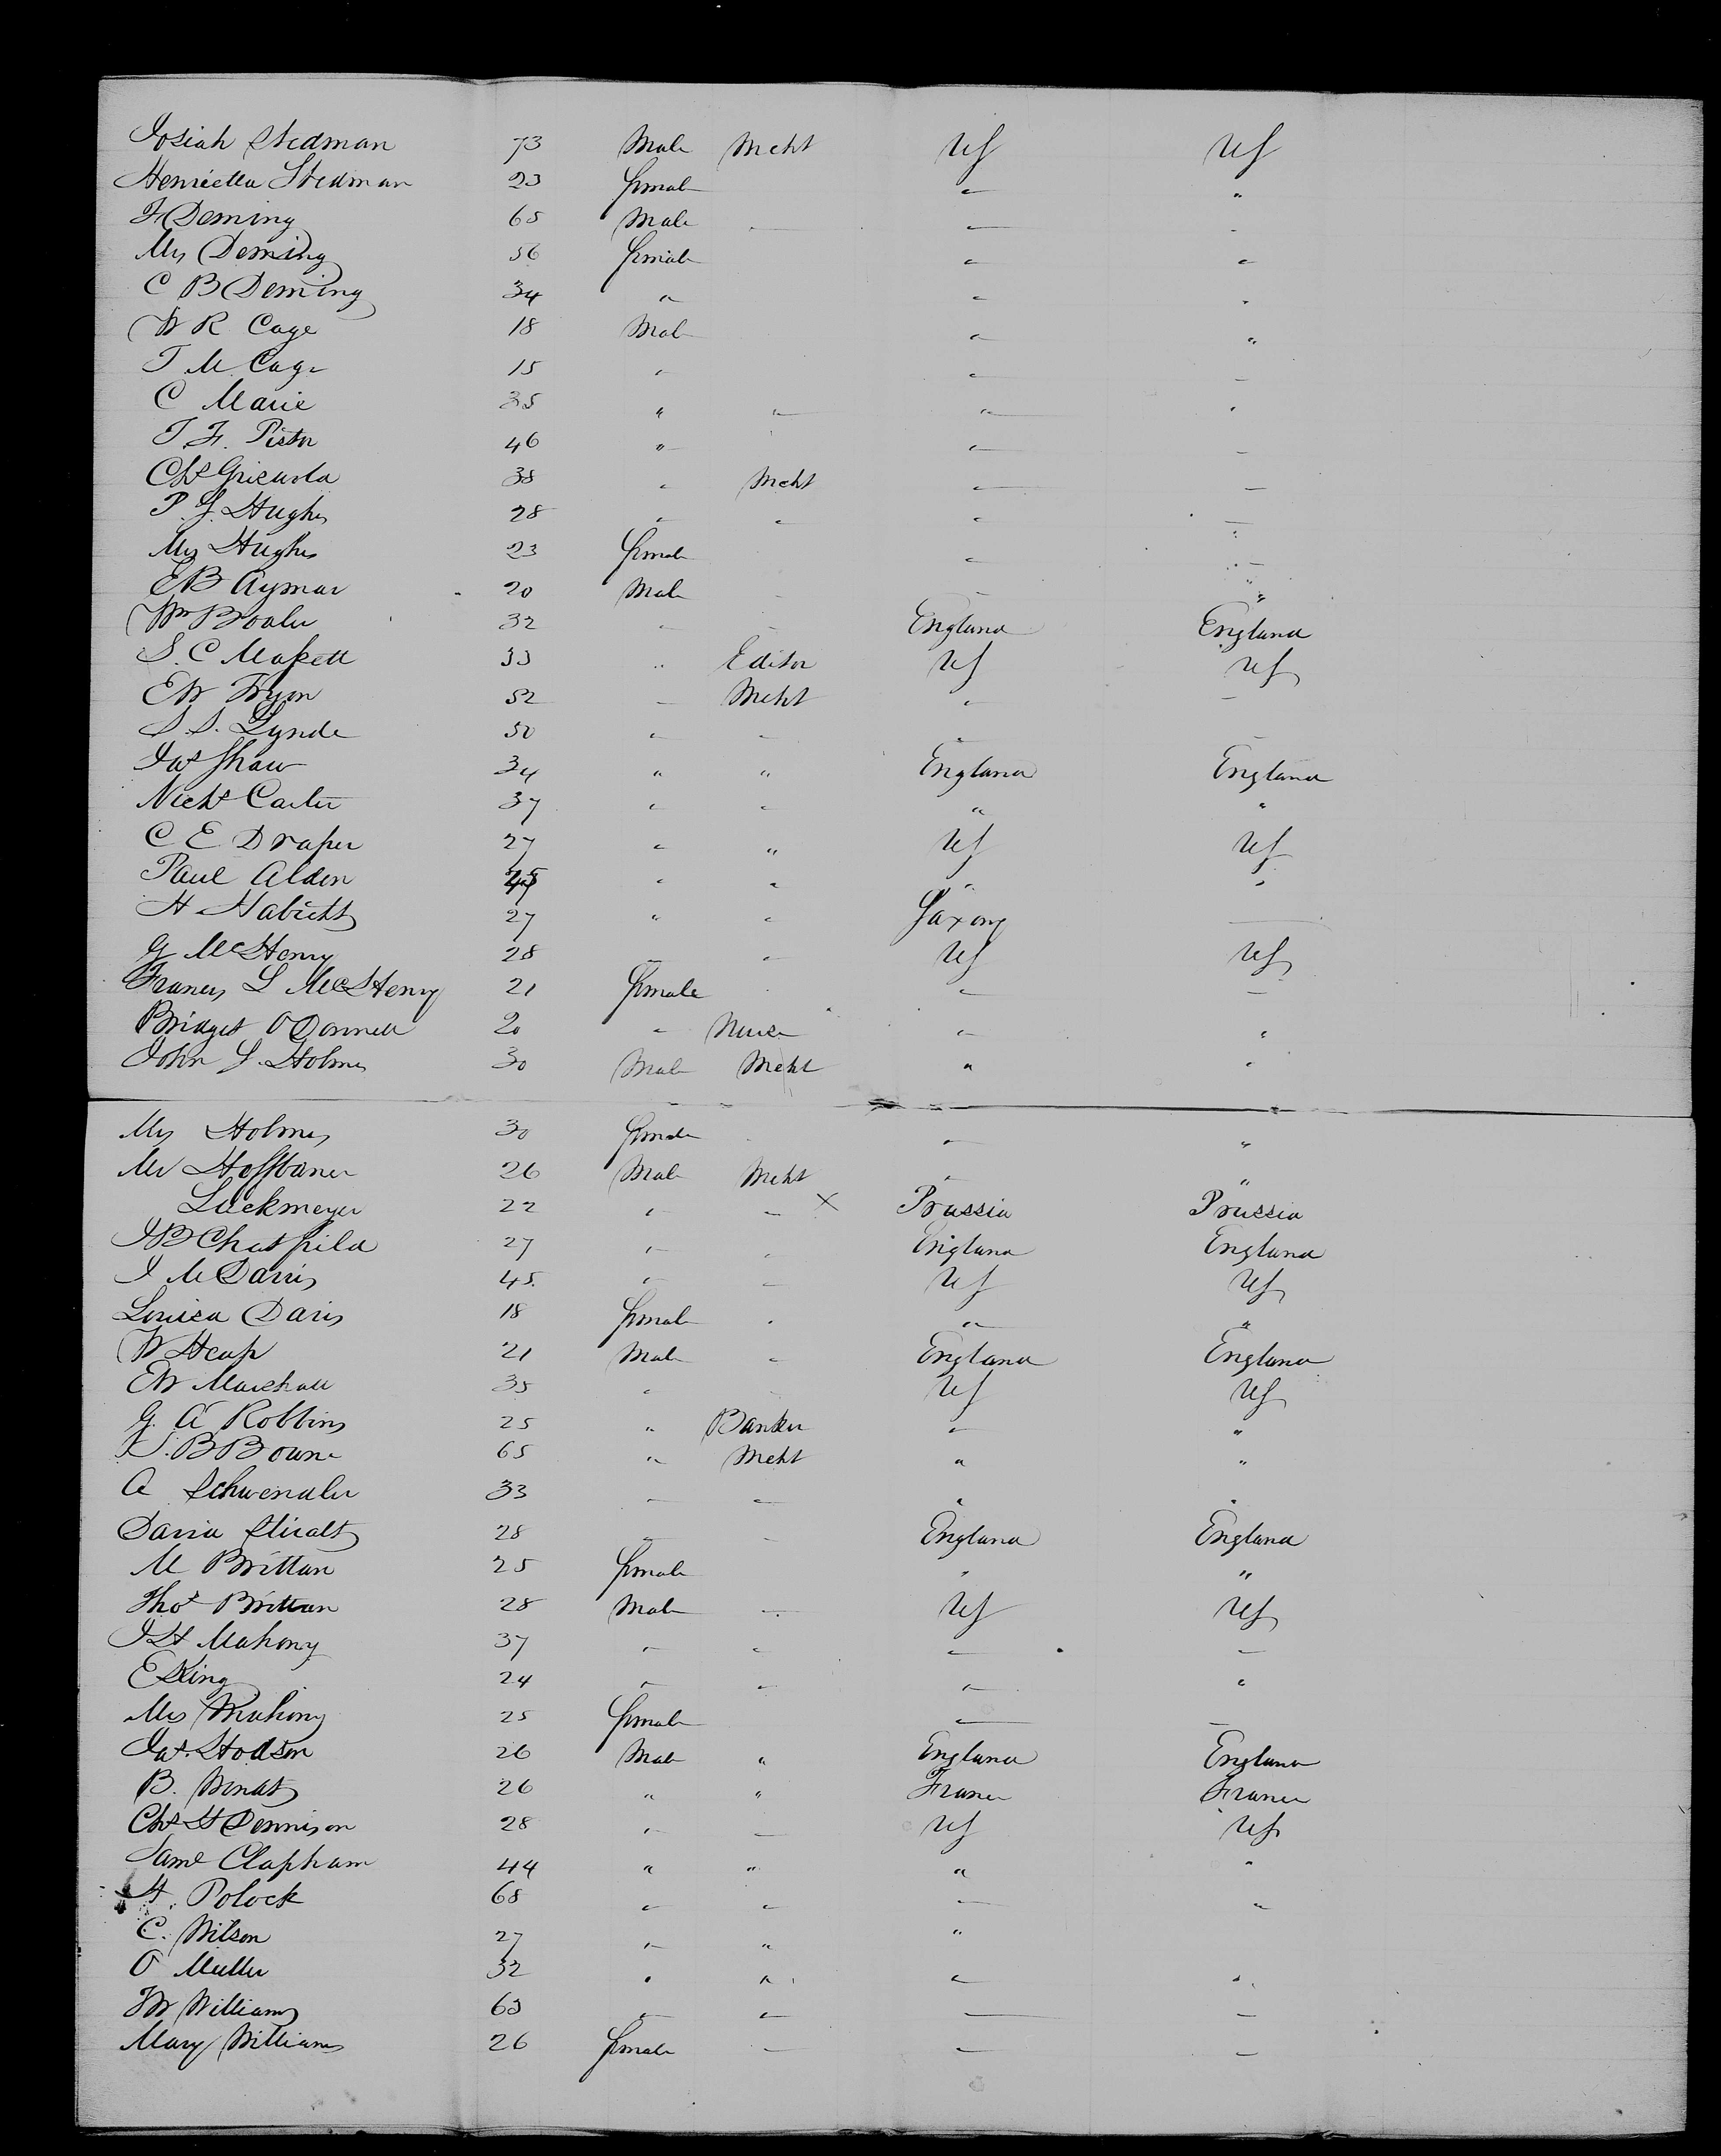 Josiah Stedman 73 Male Mcht US US
Henrietta Stedman 23 female " "
F Deming 65 Male " " "
Mrs Deming 56 female " "
C B Deming 34 " " "
W R Cage 18 Male " "
T M Cage 15 " " "
C Marie 35 " " " "
T. F. Pistor 46 " " "
Chs 38 " Mcht " "
P. G. Hughes 28 " " " "
Mrs Hughes 23 female " "
E B Aymar 20 Male " " "
Wm Boaler 32 " " England England
S. C. Massett 33 " Editor US US
E W Tryon 52 " Mcht " "
S. S. Lynde 50 " " " "
Jas Shaw 34 " " England England
Nichs Carter 37 " " " "
C E Draper 27 " " US US
Paul Alden 45 " " " "
H Habicht 27 " " Saxony "
G McHenry 28 " " US US
Frances L McHenry 21 female " "
Bridget O Donnell 20 " Nurse " "
John S. Holmes 30 Male Mcht " "
Mrs Holmes 30 female " "
Mr Hoffbauer 26 Male Mcht " "
Luckmeyer 22 " " x Prussia Prussia
J B Chatfield 27 " " England England
J M Davis 45. " " US US
Louisa Davis 18 female " "
W Heap 21 Male " England England
E W Marshall 35 " " US US
G. A Robbins 25 " Banker " "
S. B Bowne 65 " Mcht " "
A Schwendler 33 " " " "
David 28 " " England England
M Brittan 25 female " "
Thos Brittan 28 Male " US US
J H Mahony 37 " " " "
E King 24 " " " "
Mrs Mahony 25 female " "
Jas. Hodson 26 Male " England England
B. 26 " " France France
Chs H Dennison 28 " " US US
Saml Clapham 44 " " " "
H. Polock 68 " " " "
C. Wilson 27 " " "
O Muller 32 " " " "
T W Williams 63 " " " "
Mary Williams 26 female " " "